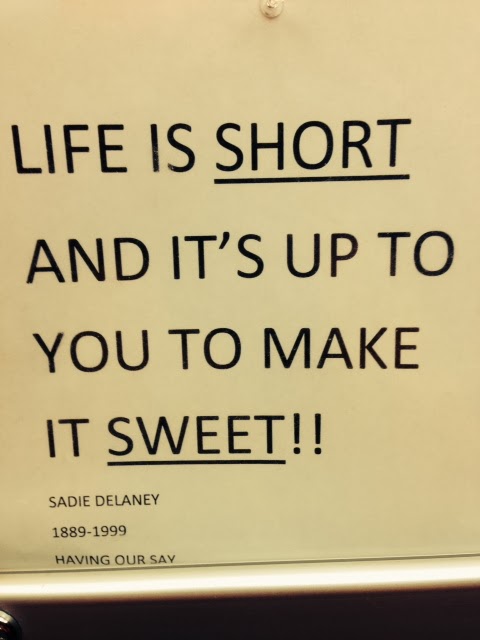 LIFE IS SHORT
AND IT'S UP TO
YOU TO MAKE
IT SWEET!!
SADIE DELANEY
1889-1999
HAVING OUR SAY